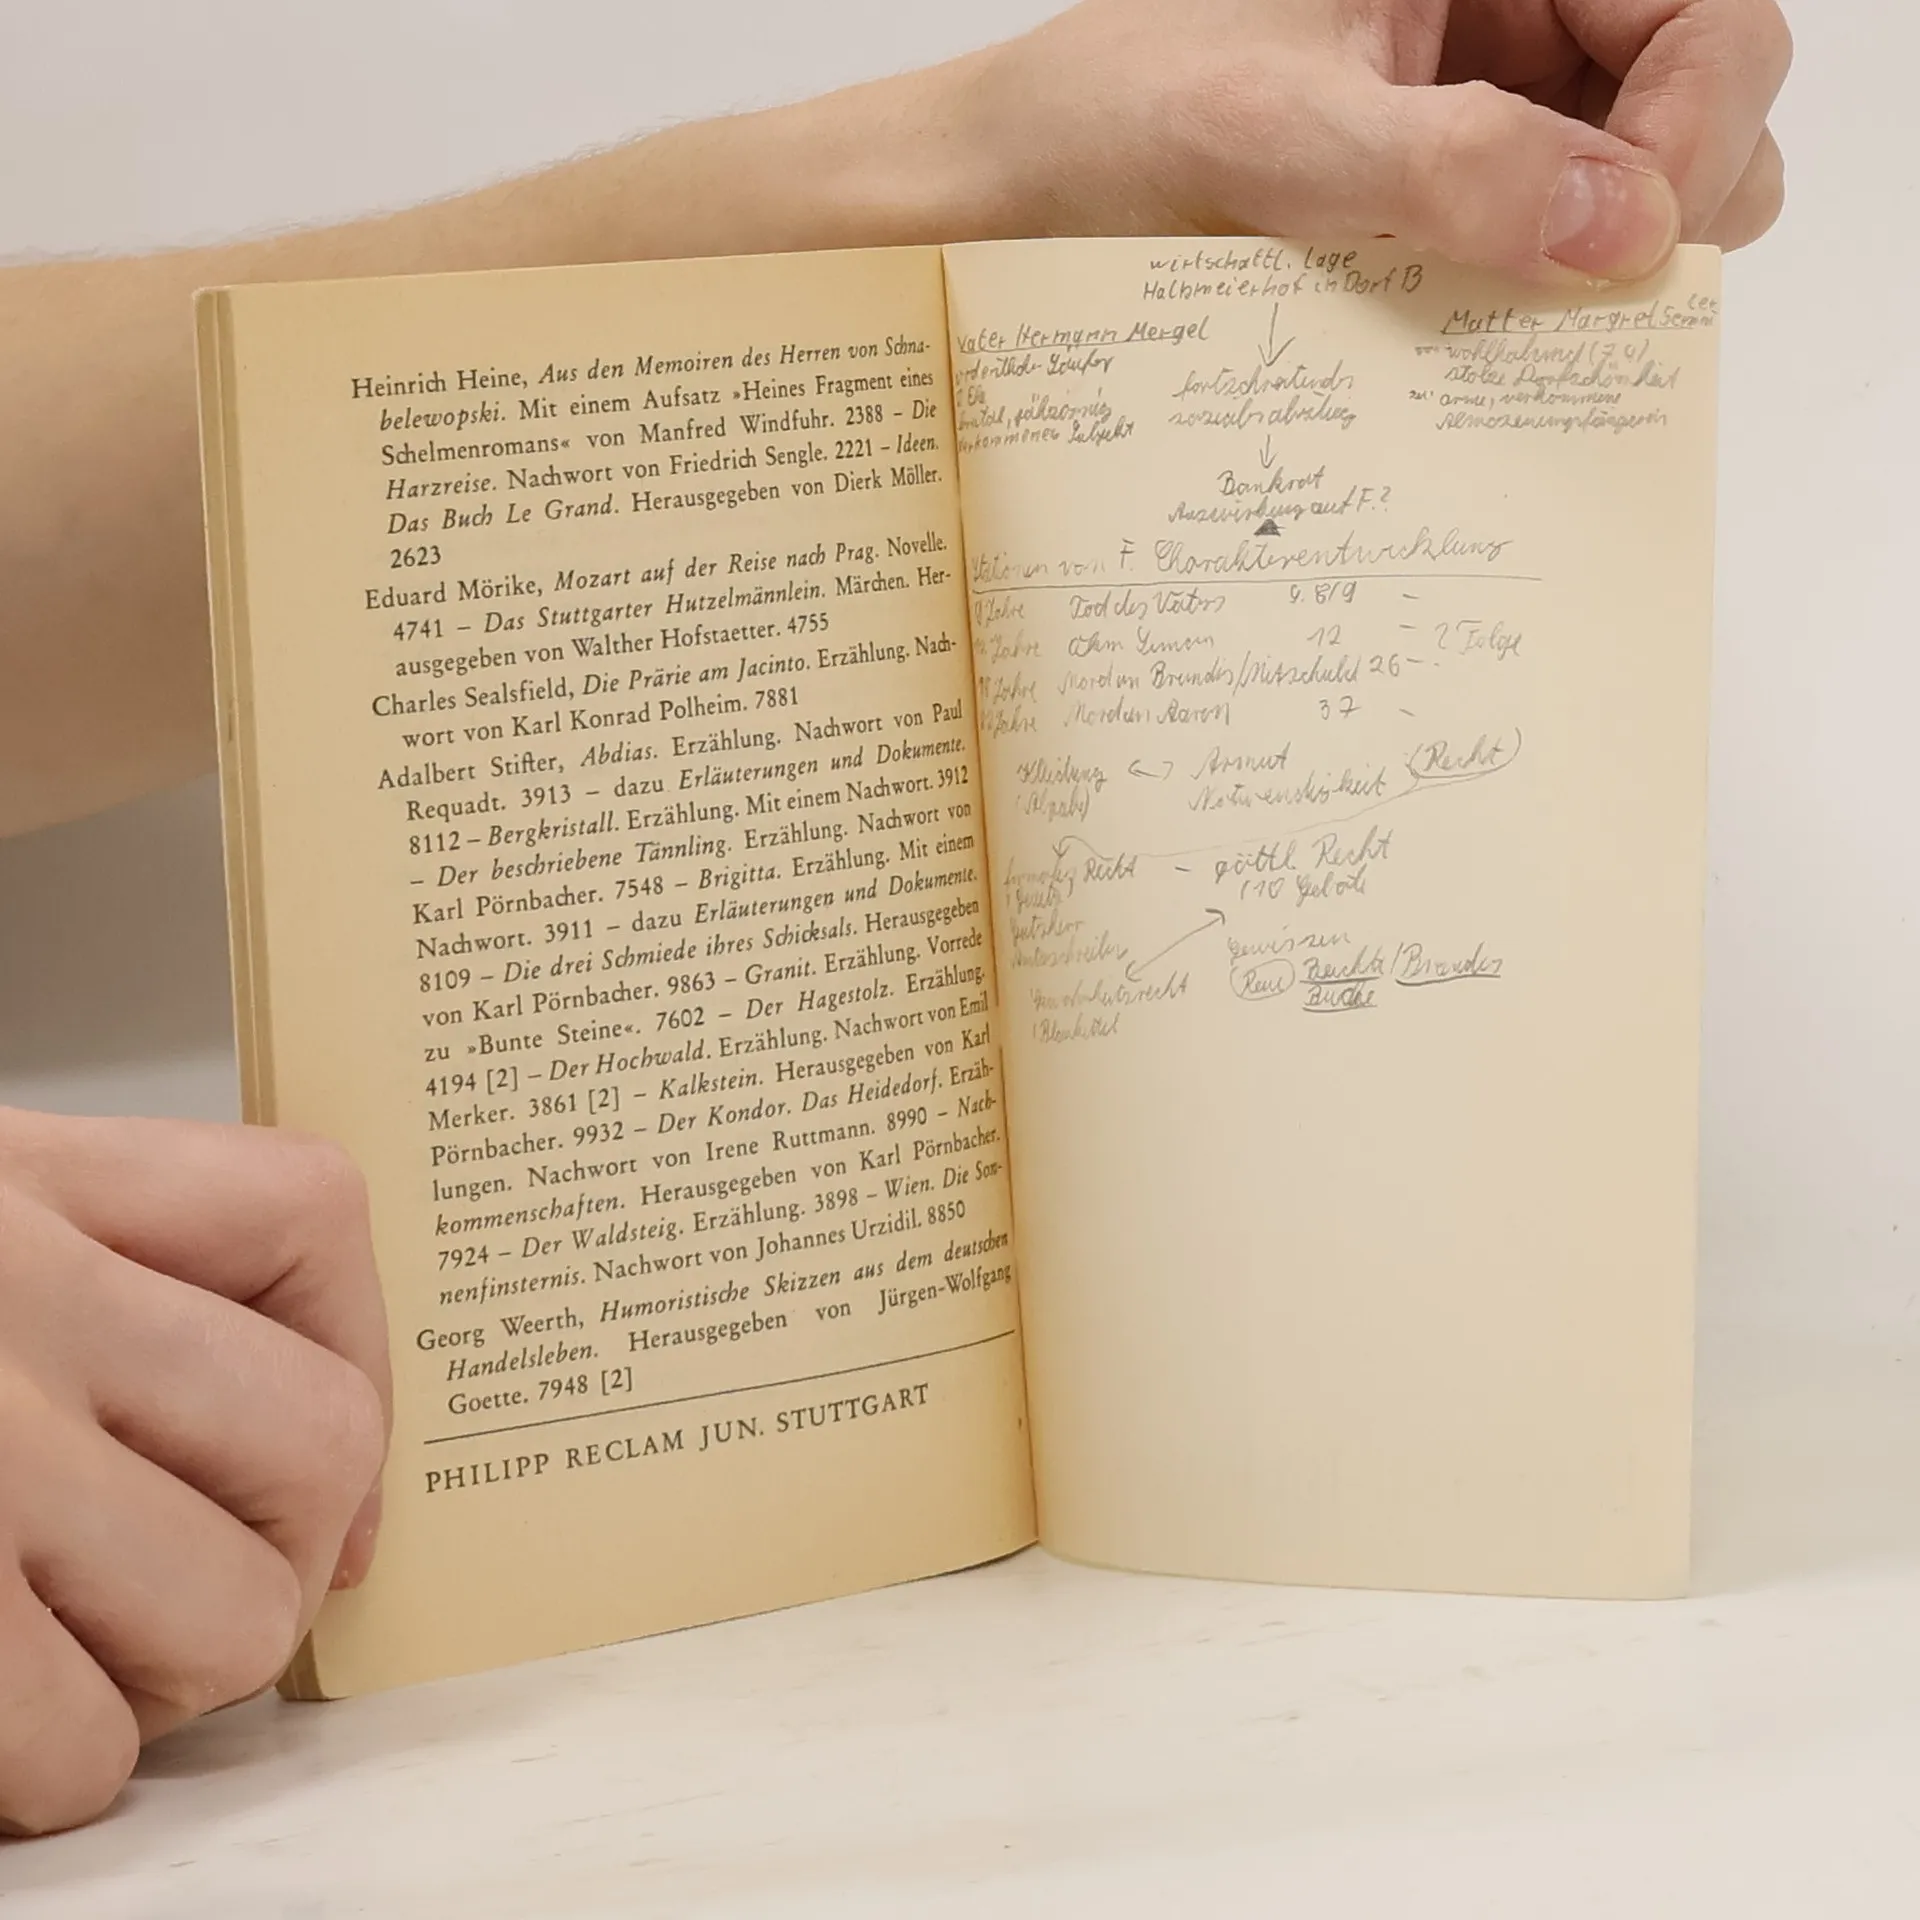 Heinrich Heine, Aus den Memoiren des Herren von Schna-
belewopski. Mit einem Aufsatz »Heines Fragment eines
Schelmenromans« von Manfred Windfuhr. 2388 – Die
Harzreise. Nachwort von Friedrich Sengle. 2221 – Ideen.
Das Buch Le Grand. Herausgegeben von Dierk Möller.
2623
Eduard Mörike, Mozart auf der Reise nach Prag. Novelle.
4741 – Das Stuttgarter Hutzelmännlein. Märchen. Her-
ausgegeben von Walther Hofstaetter. 4755
Charles Sealsfield, Die Prärie am Jacinto. Erzählung. Nach-
wort von Karl Konrad Polheim. 7881
Adalbert Stifter, Abdias. Erzählung. Nachwort von Paul
Requadt. 3913 – dazu Erläuterungen und Dokumente.
8112 – Bergkristall. Erzählung. Mit einem Nachwort. 3912
– Der beschriebene Tännling. Erzählung. Nachwort von
Karl Pörnbacher. 7548 – Brigitta. Erzählung. Mit einem
Nachwort. 3911 – dazu Erläuterungen und Dokumente.
8109 – Die drei Schmiede ihres Schicksals. Herausgegeben
von Karl Pörnbacher. 9863 – Granit. Erzählung. Vorrede
zu »Bunte Steine«. 7602 – Der Hagestolz. Erzählung.
4194 [2] – Der Hochwald. Erzählung. Nachwort von Emil
Merker. 3861 [2] – Kalkstein. Herausgegeben von Karl
Pörnbacher. 9932 – Der Kondor. Das Heidedorf. Erzäh-
lungen. Nachwort von Irene Ruttmann. 8990 – Nach-
kommenschaften. Herausgegeben von Karl Pörnbacher.
7924 – Der Waldsteig. Erzählung. 3898 – Wien. Die Son-
nenfinsternis. Nachwort von Johannes Urzidil. 8850
Georg Weerth, Humoristische Skizzen aus dem deutschen
Handelsleben. Herausgegeben von Jürgen-Wolfgang
Goette. 7948 [2]
PHILIPP RECLAM JUN. STUTTGART
wirtschaftl. Lage
Halbmeierhof in Dorf B
Vater Hermann Mergel
ordentlicher Säufer
2 Ehe
brutal, jähzornig
verkommenes Subjekt
fortschreitender
sozialer Abstieg
Bankrot
Auswirkung auf F.?
Mutter Margret Semmler
wohlhabend
stolze Dorfschönheit
arme, verkommene
Almosenempfängerin
Stationen von F. Charakterentwicklung
9 Jahre Tod des Vaters S. 8/9 –
12 Jahre Ohm Simon 12 – ? Folge
18 Jahre Mord an Brandis/Mitschuld 26 –
22 Jahre Mord an Aaron 37 –
Kleidung Armut (Recht)
Notwendigkeit
Recht – göttl Recht
(10 Gebote
Gutsherr
Gewissen
Reue Beichte / Brandis
Buche
Gewohnheitsrecht